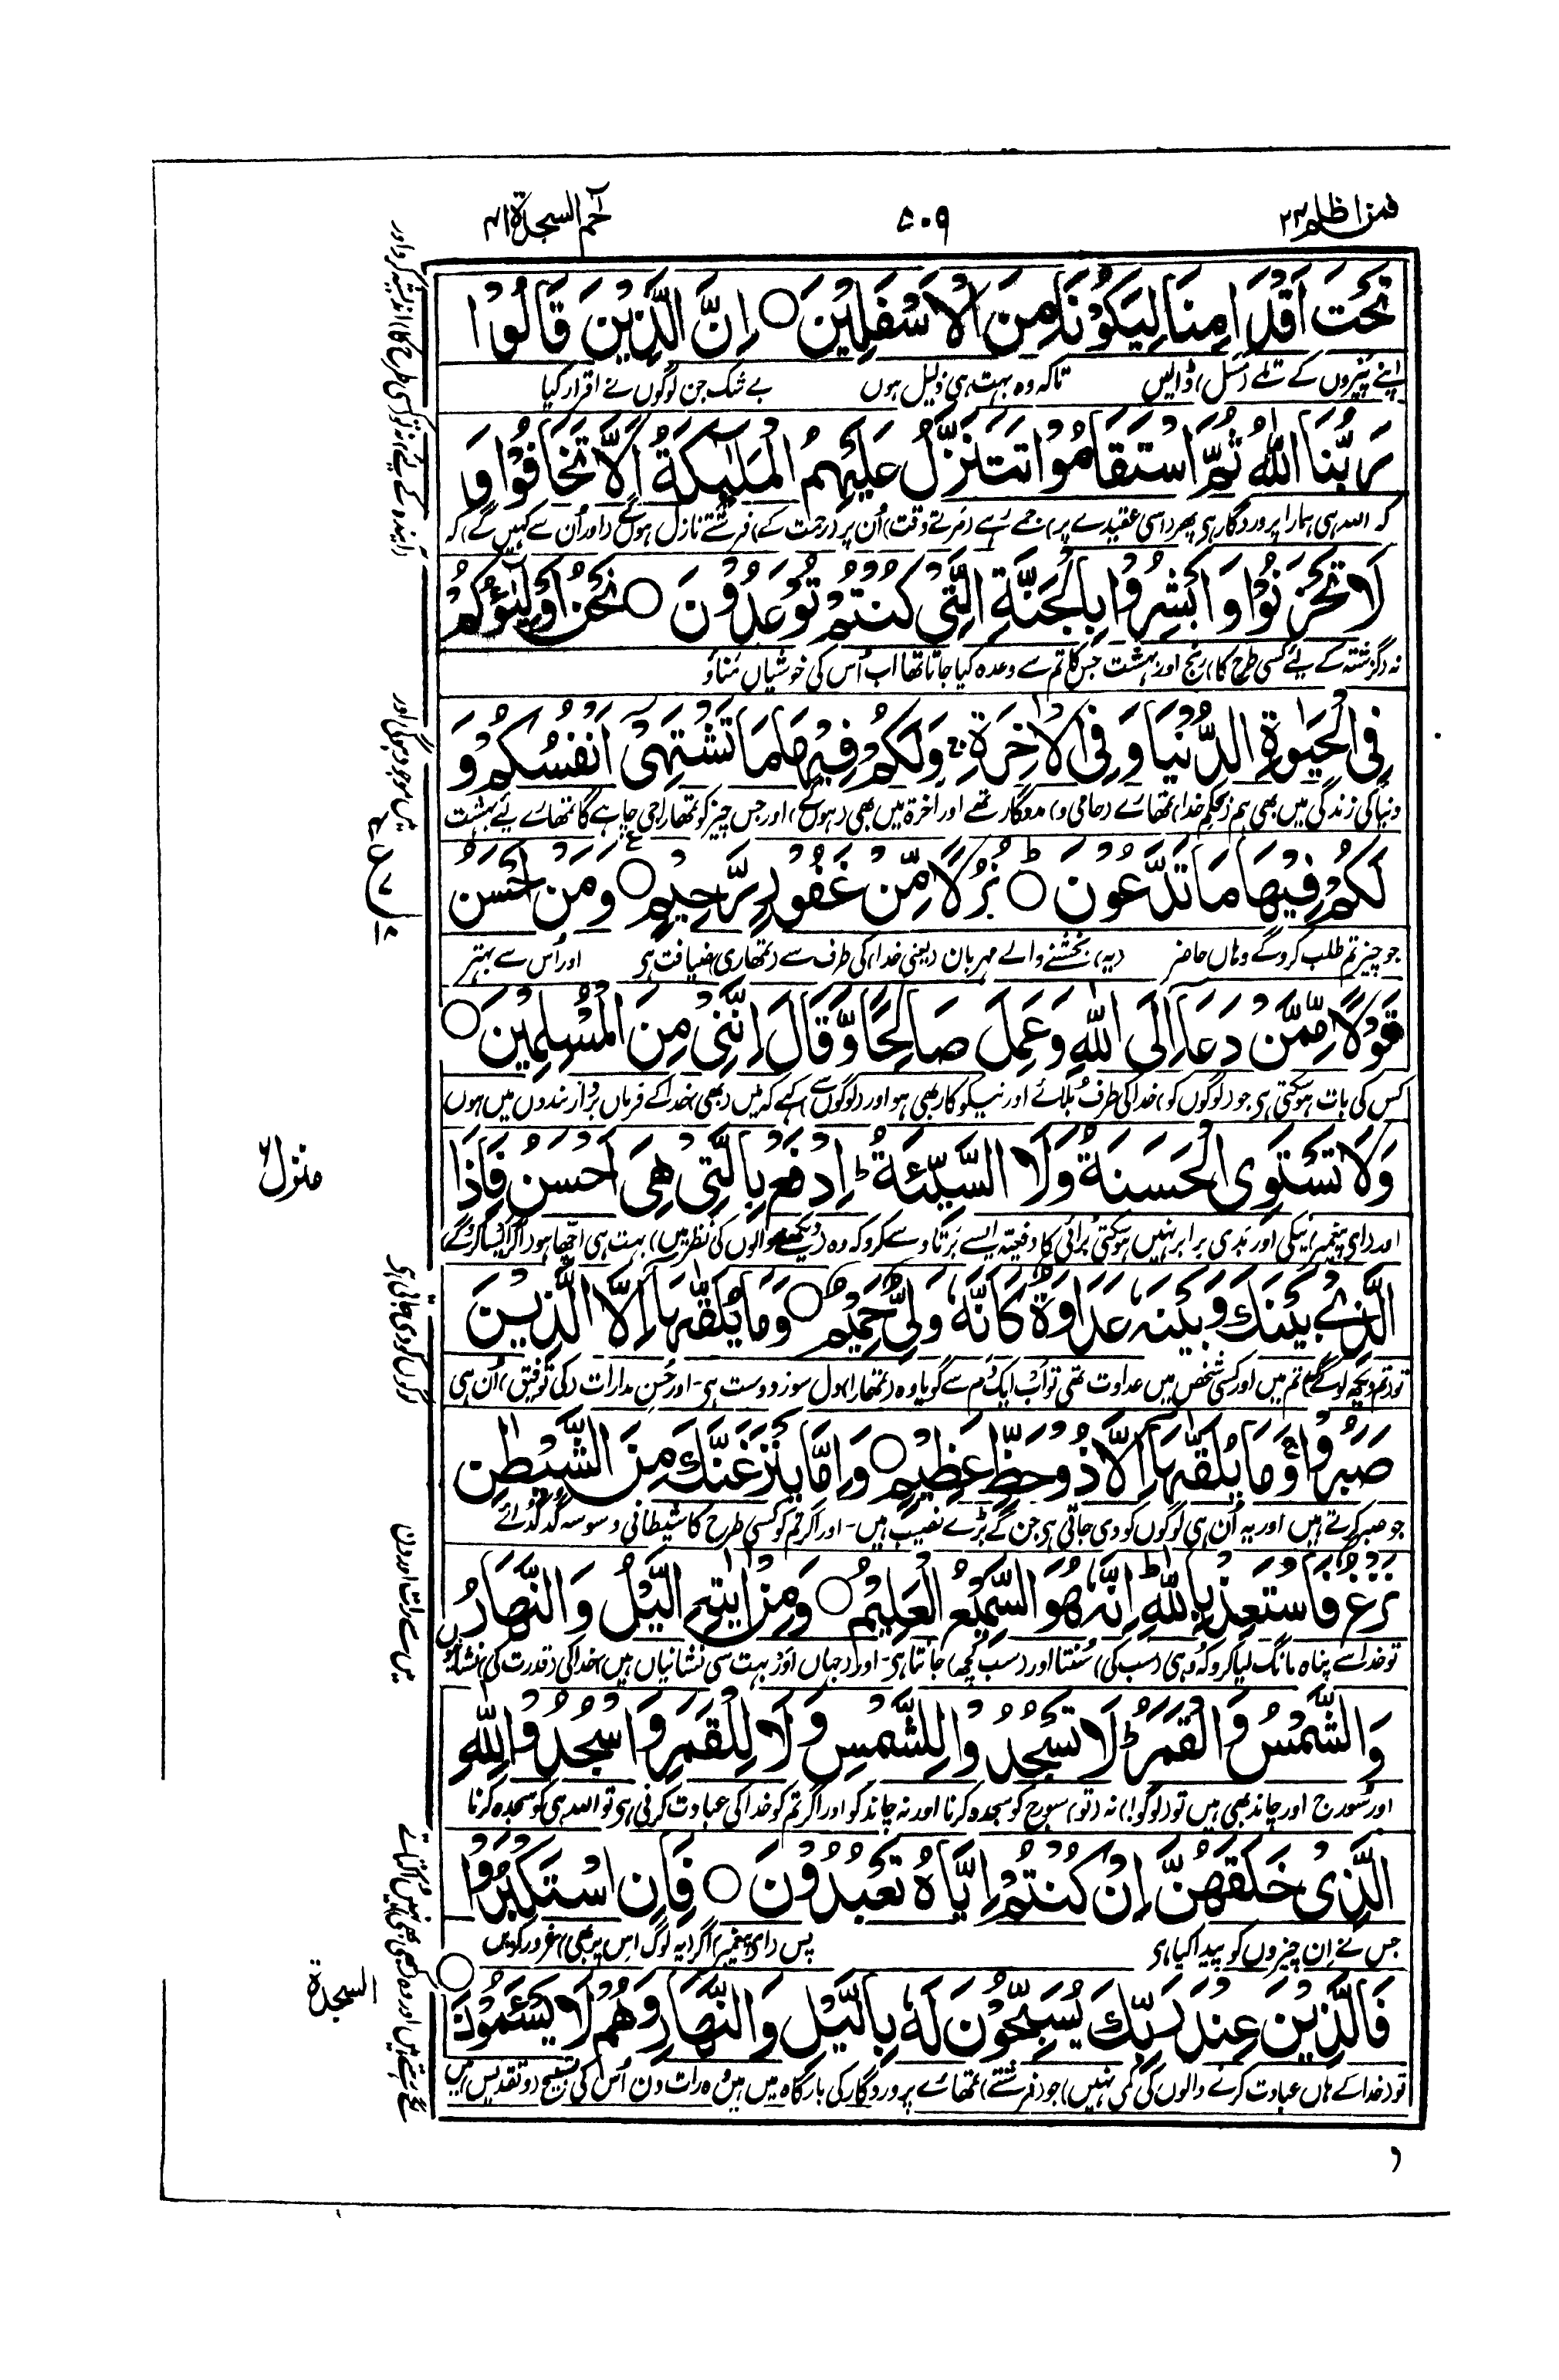 فمن اظلم ۲۴
۵۰۹
حٰم السجدة ۴۱
تَحْتَ اَقْدَامِنَا لِيَكُوْنَا مِنَ الْاَسْفَلِيْنَ ○ اِنَّ الَّذِيْنَ قَالُوْا
اپنے پیروں کے تلے (مسل) ڈالیں تاکہ وہ بہت ہی ذلیل ہوں بے شک جن لوگوں نے اقرار کیا
رَبُّنَا اللّٰهُ ثُمَّ اسْتَقَامُوْا تَتَنَزَّلُ عَلَيْهِمُ الْمَلٰٓئِكَةُ اَلَّا تَخَافُوْا وَ
کہ اللہ ہی ہمارا پروردگار ہی پھر (اسی عقیدے پر) جمے رہے (مرتے وقت) اُن پر (رحمت کے) فرشتے نازل ہوں گے (اور اُن سے کہیں گے) کہ
(آیندہ کے لیے) نہ تو کسی طرح کا اندیشہ کرو اور
لَا تَحْزَنُوْا وَاَبْشِرُوْا بِالْجَنَّةِ الَّتِيْ كُنْتُمْ تُوْعَدُوْنَ ○ نَحْنُ اَوْلِيٰٓؤُكُمْ
نہ (گزشتہ کے لیے کسی طرح کا) رنج اور بہشت جس کا تم سے وعدہ کیا جاتا تھا اب اُس کی خوشیاں مناؤ
فِي الْحَيٰوةِ الدُّنْيَا وَفِي الْاٰخِرَةِ ۚ وَلَكُمْ فِيْهَا مَا تَشْتَهِيْٓ اَنْفُسُكُمْ وَ
دنیا کی زندگی میں بھی ہم (بحکم خدا) تمھارے (حامی و) مددگار تھے اور آخرة میں بھی (ہوں گے) اور جس چیز کو تمھارا جی چاہے گا تمھارے لیے بہشت
میں موجود ہوگی اور
لَكُمْ فِيْهَا مَا تَدَّعُوْنَ ○ؕ نُزُلًا مِّنْ غَفُوْرٍ رَّحِيْمٍ ○ۧ وَمَنْ اَحْسَنُ
جو چیز تم طلب کروگے وہاں حاضر (یہ) بخشنے والے مہربان (یعنی خدا) کی طرف سے (تمھاری) ضیافت ہی اور اُس سے بہتر
قَوْلًا مِّمَّنْ دَعَآ اِلَى اللّٰهِ وَعَمِلَ صَالِحًا وَّقَالَ اِنَّنِيْ مِنَ الْمُسْلِمِيْنَ ○
کس کی بات ہوسکتی ہی جو (لوگوں کو) خدا کی طرف بُلائے اور نیکوکار بھی ہو اور (لوگوں سے) کہے کہ میں (بھی) خدا کے فرماں بردار بندوں میں ہوں
منزل ۶
وَلَا تَسْتَوِي الْحَسَنَةُ وَلَا السَّيِّئَةُ ؕ اِدْفَعْ بِالَّتِيْ هِيَ اَحْسَنُ فَاِذَا
اور (اے پیغمبر) نیکی اور بدی برابر نہیں ہوسکتی بُرائی کا دفعیہ ایسے برتاؤ سے کرو کہ وہ (دیکھنے والوں کی نظر میں) بہت ہی اچھا ہو (اگر ایسا کروگے)
الَّذِيْ بَيْنَكَ وَبَيْنَهٗ عَدَاوَةٌ كَاَنَّهٗ وَلِيٌّ حَمِيْمٌ ○ وَمَا يُلَقّٰىهَآ اِلَّا الَّذِيْنَ
تو (تم دیکھ لوگے) تم میں اور کسی شخص میں عداوت تھی تو اب ایک دم سے گویا وہ (تمھارا) دل سوز دوست ہی۔ اور حُسنِ مدارات (کی توفیق) اُن ہی
لوگوں کو دی جاتی ہی
صَبَرُوْا ۚ وَمَا يُلَقّٰىهَآ اِلَّا ذُوْ حَظٍّ عَظِيْمٍ ○ وَاِمَّا يَنْزَغَنَّكَ مِنَ الشَّيْطٰنِ
جو صبر کرتے ہیں اور یہ اُن ہی لوگوں کو دی جاتی ہی جن کے بڑے نصیب ہیں۔ اور اگر تم کو کسی طرح کا شیطانی وسوسہ گدگدائے
نَزْغٌ فَاسْتَعِذْ بِاللّٰهِ ؕ اِنَّهٗ هُوَ السَّمِيْعُ الْعَلِيْمُ ○ وَمِنْ اٰيٰتِهِ الَّيْلُ وَالنَّهَارُ
تو خدا سے پناہ مانگ لیا کرو کہ وہی (سب کی) سنتا اور (سب کچھ) جانتا ہی۔ اور (جہاں اور بہت سی نشانیاں ہیں) خدا کی (قدرت کی) نشانیوں
میں سے رات اور دن
وَالشَّمْسُ وَالْقَمَرُ ؕ لَا تَسْجُدُوْا لِلشَّمْسِ وَلَا لِلْقَمَرِ وَاسْجُدُوْا لِلّٰهِ
اور سُورج اور چاند بھی ہیں تو (لوگو!) نہ (تو) سورج کو سجدہ کرنا اور نہ چاند کو اور اگر تم کو خدا کی عبادت کرنی ہی تو اللہ ہی کو سجدہ کرنا
الَّذِيْ خَلَقَهُنَّ اِنْ كُنْتُمْ اِيَّاهُ تَعْبُدُوْنَ ○ فَاِنِ اسْتَكْبَرُوْا
جس نے اِن چیزوں کو پیدا کیا ہی پس (اے پیغمبر) اگر (یہ لوگ اِس پر بھی) غرور کریں
فَالَّذِيْنَ عِنْدَ رَبِّكَ يُسَبِّحُوْنَ لَهٗ بِالَّيْلِ وَالنَّهَارِ وَهُمْ لَا يَسْـَٔمُوْنَ ○
السجدة
تو (خدا کے ہاں عبادت کرنے والوں کی کمی نہیں) جو (فرشتے) تمھارے پروردگار کی بارگاہ میں ہیں وہ رات دن اُس کی تسبیح (و تقدیس) میں
لگے رہتے ہیں اور وہ کبھی بھی نہیں اُکتاتے